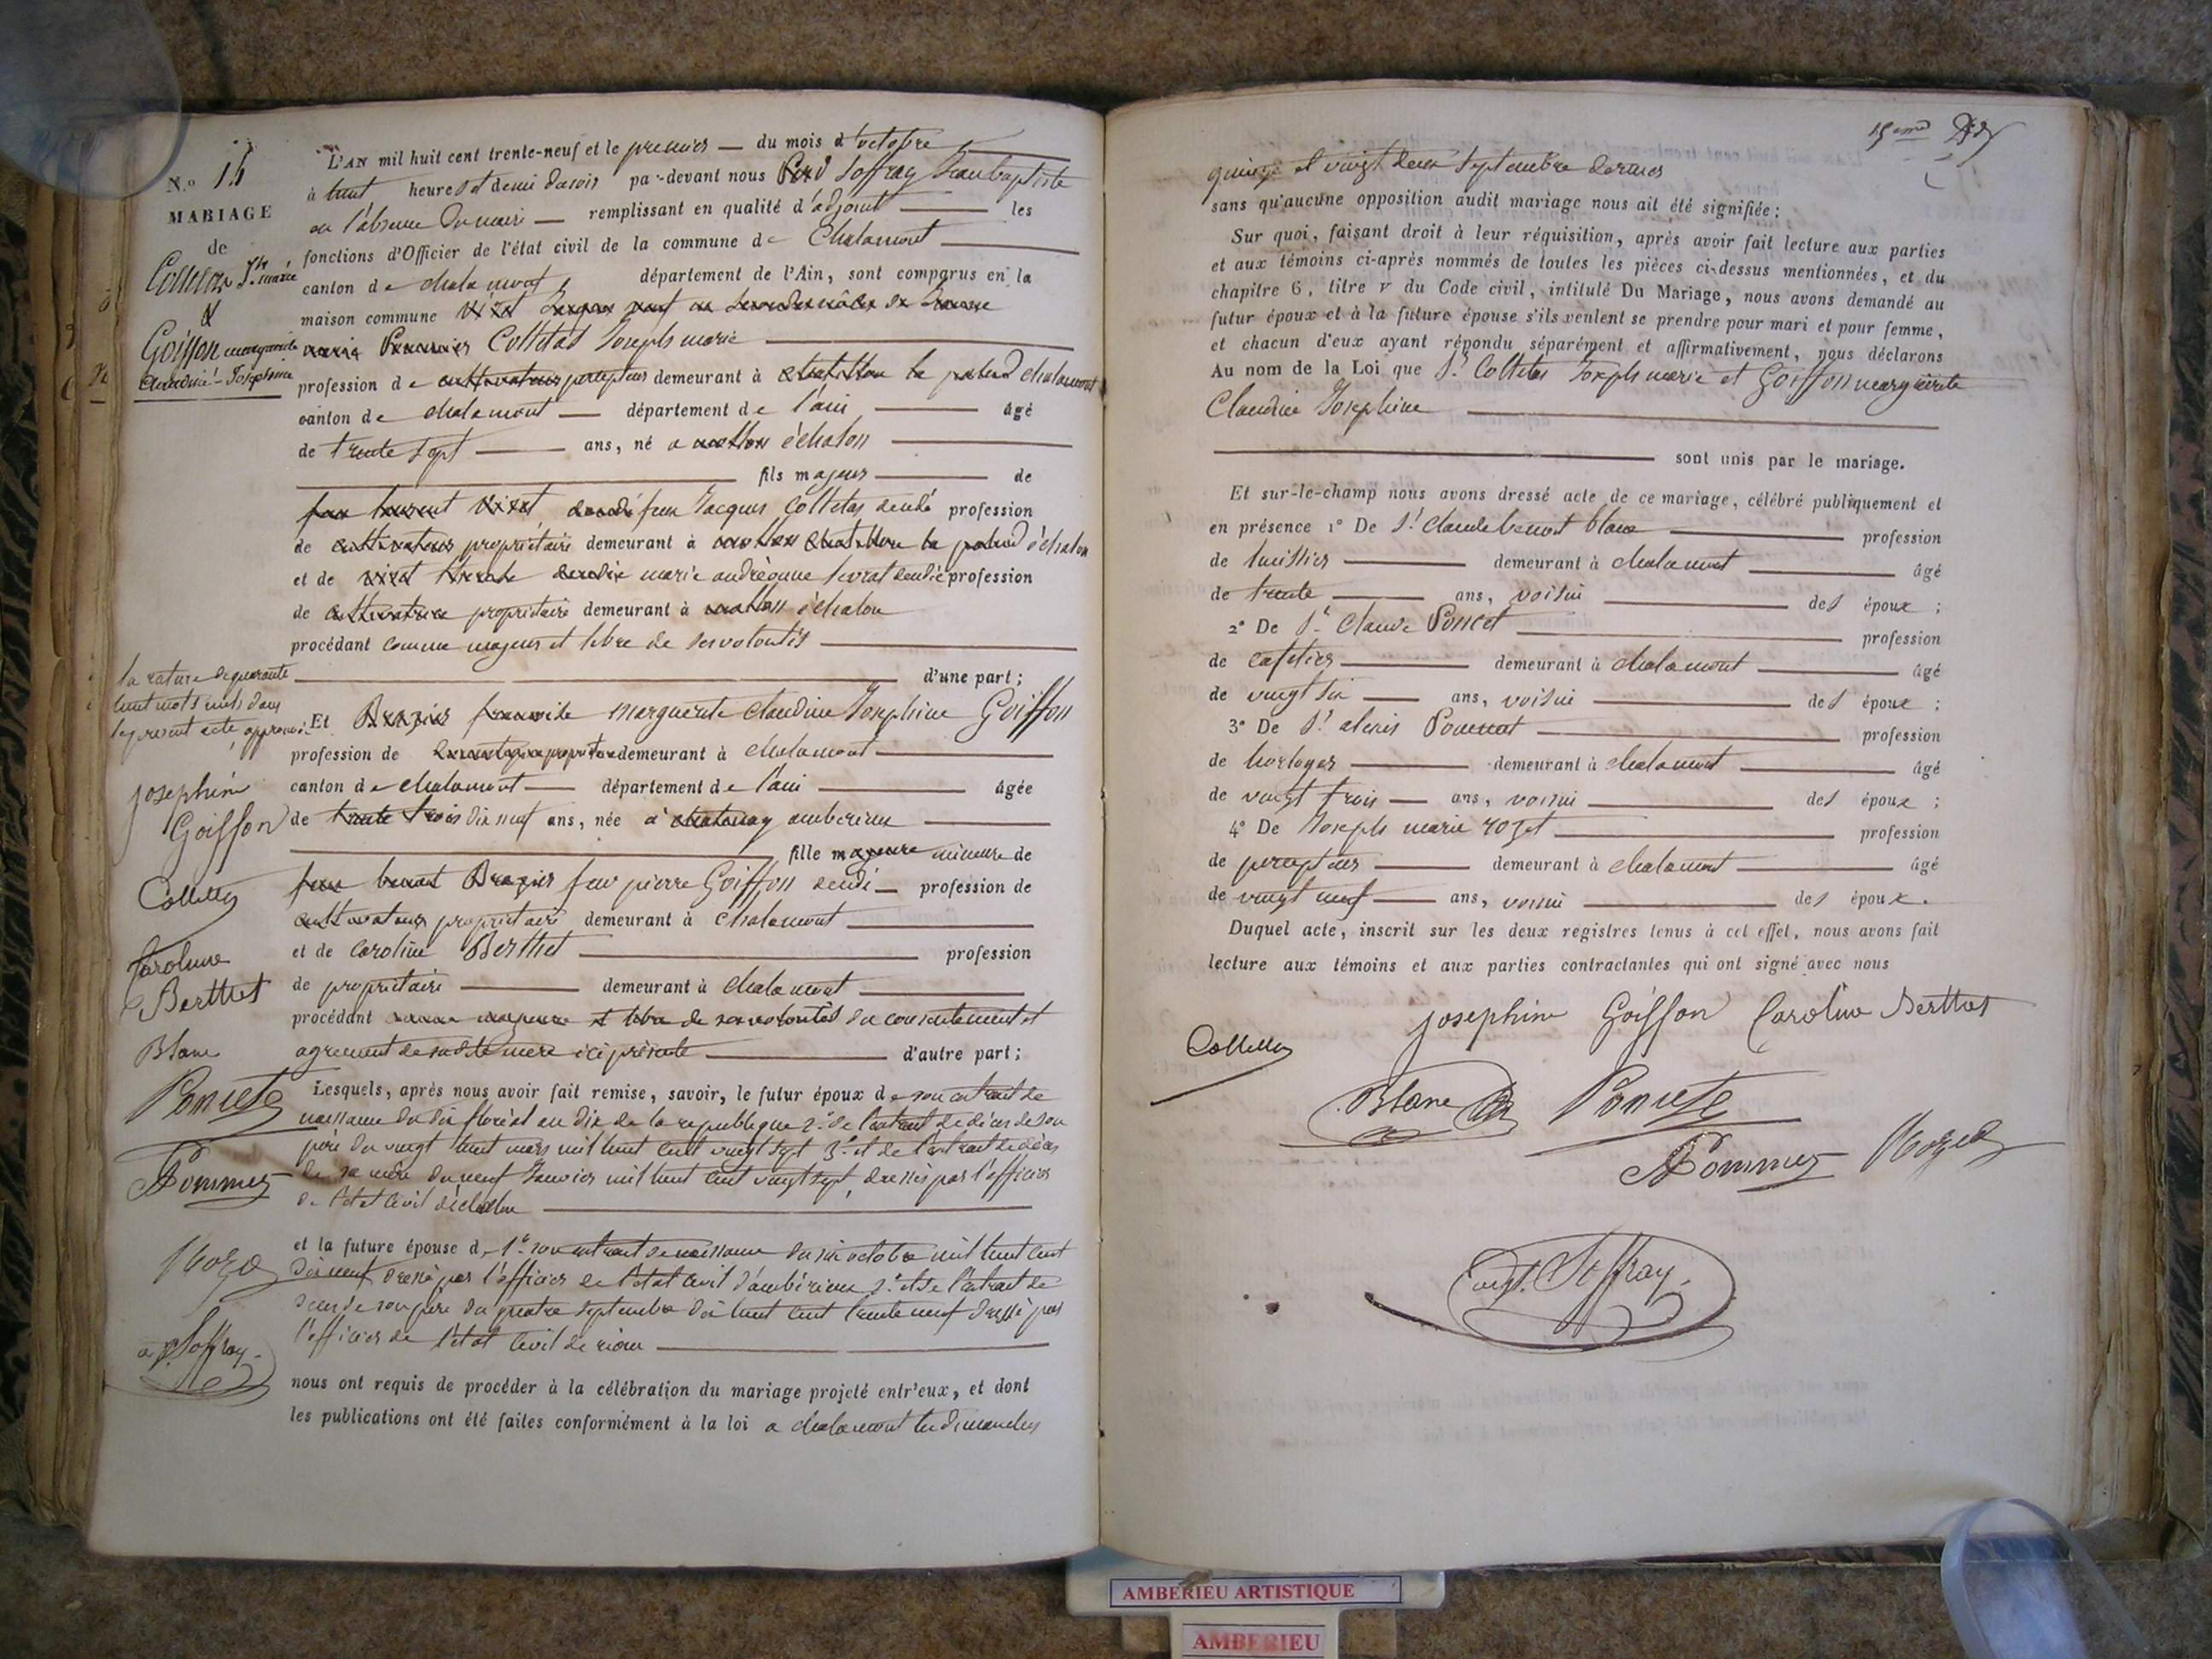 N.o 14
MARIAGE
de
Collelas Jh. marie
&
Goiffon marguerite
claudine Josephine
L'AN mil huit cent trente-neuf et le premier — du mois d'octobre
à huit heures et demi du soir par-devant nous Soffray Jean baptiste
en l'absence du maire — remplissant en qualité d'adjoint — les
fonctions d'Officier de l'état civil de la commune de Chalamont
canton de chalamont département de l'Ain, sont comparus en la
maison commune
Colletas Joseph marie
profession de percepteur demeurant à chalamont
canton de chalamont — département de l'ain — âgé
de trente sept — ans, né a échalon
fils majeur — de
feu Jacques Colletas décédé profession
de propriétaire demeurant à échalon
et de marie andréanne livrat décédée profession
de propriétaire demeurant à échalon
procédant comme majeur et libre de ses volontés
d'une part;
la rature de quarante
huit mots nuls dans
le present acte approuvé.
Et marguerite claudine Josephine Goiffon
profession de demeurant à chalamont
canton de chalamont — département de l'ain — âgée
de dix neuf ans, née a amberieux
fille mineure de
feu pierre Goiffon décédé — profession de
propriétaire demeurant à chalamont
et de caroline Berthet profession
de propriétaire — demeurant à chalamont
procédant du consentement et
agrement de sadite mère ici présente — d'autre part;
Josephine
Goiffon
Colletas
Caroline
Berthet
Blanc
Poncet
Pommet
Rozet
aj. Soffray
Lesquels, après nous avoir fait remise, savoir, le futur époux de son extrait de
naissance du dix floréal an dix de la republique 2.° de l'extrait de décès de son
père du vingt huit mars mil huit cent vingt sept 3.° et de l'extrait de décès
de sa mère du neuf Janvier mil huit cent vingt sept, dressés par l'officier
de l'état civil d'échalon
et la future épouse de 1.° son extrait de naissance du six octobre mil huit cent
dix neuf dressé par l'officier de l'état civil d'ambérieux 2.° et de l'extrait de
décès de son père du quatre septembre dix huit cent trente neuf dressé par
l'officier de l'état civil de
nous ont requis de procéder à la célébration du mariage projeté entr'eux, et dont
les publications ont été faites conformément à la loi a chalamont les dimanches
15eme
quinze et vingt deux septembre dernier
sans qu'aucune opposition audit mariage nous ait été signifiée;
Sur quoi, faisant droit à leur réquisition, après avoir fait lecture aux parties
et aux témoins ci-après nommés de toutes les pièces ci-dessus mentionnées, et du
chapitre 6, titre v du Code civil, intitulé Du Mariage, nous avons demandé au
futur époux et à la future épouse s'ils veulent se prendre pour mari et pour femme,
et chacun d'eux ayant répondu séparément et affirmativement, nous déclarons
Au nom de la Loi que Sr. Colletas Joseph marie et Goiffon marguerite
Claudine Josephine
sont unis par le mariage.
Et sur-le-champ nous avons dressé acte de ce mariage, célébré publiquement et
en présence 1° De Sr. claude benoit blanc profession
de huissier — demeurant à chalamont — âgé
de trente — ans, voisin — des époux ;
2° De Sr. Claude Poncet profession
de cafetier — demeurant à chalamont — âgé
de vingt six — ans, voisin — des époux ;
3° De Sr. alexis Pommet profession
de horloger — demeurant à chalamont — âgé
de vingt trois — ans, voisin — des époux ;
4° De Joseph marie rozet profession
de percepteur — demeurant à chalamont — âgé
de vingt neuf — ans, voisin — des époux.
Duquel acte, inscrit sur les deux registres tenus à cet effet, nous avons fait
lecture aux témoins et aux parties contractantes qui ont signé avec nous
Josephine Goiffon Caroline Berthet
Colletas
Blanc Poncet
Pommet Rozet
adjt. Soffray
AMBERIEU ARTISTIQUE
AMBERIEU